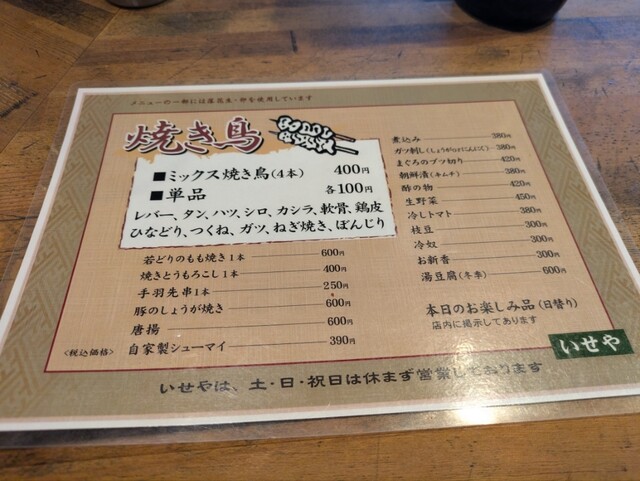 メニューの一部には落花生・卵を使用しています
焼き鳥
■ミックス焼き鳥(4本) 400円
■単品 各100円
レバー、タン、ハツ、シロ、カシラ、軟骨、鶏皮
ひなどり、つくね、ガツ、ねぎ焼き、ぼんじり
若どりのもも焼き1本 600円
焼きとうもろこし1本 400円
手羽先串1本 250円
豚のしょうが焼き 600円
唐揚 600円
自家製シューマイ 390円
<税込価格>
煮込み 380円
ガツ刺し(しょうが又はにんにく) 380円
まぐろのブツ切り 420円
朝鮮漬(キムチ) 380円
酢の物 420円
生野菜 450円
冷しトマト 380円
枝豆 300円
冷奴 300円
お新香 300円
湯豆腐(冬季) 600円
本日のお楽しみ品(日替り)
店内に掲示してあります
いせや
いせやは、土・日・祝日は休まず営業しております